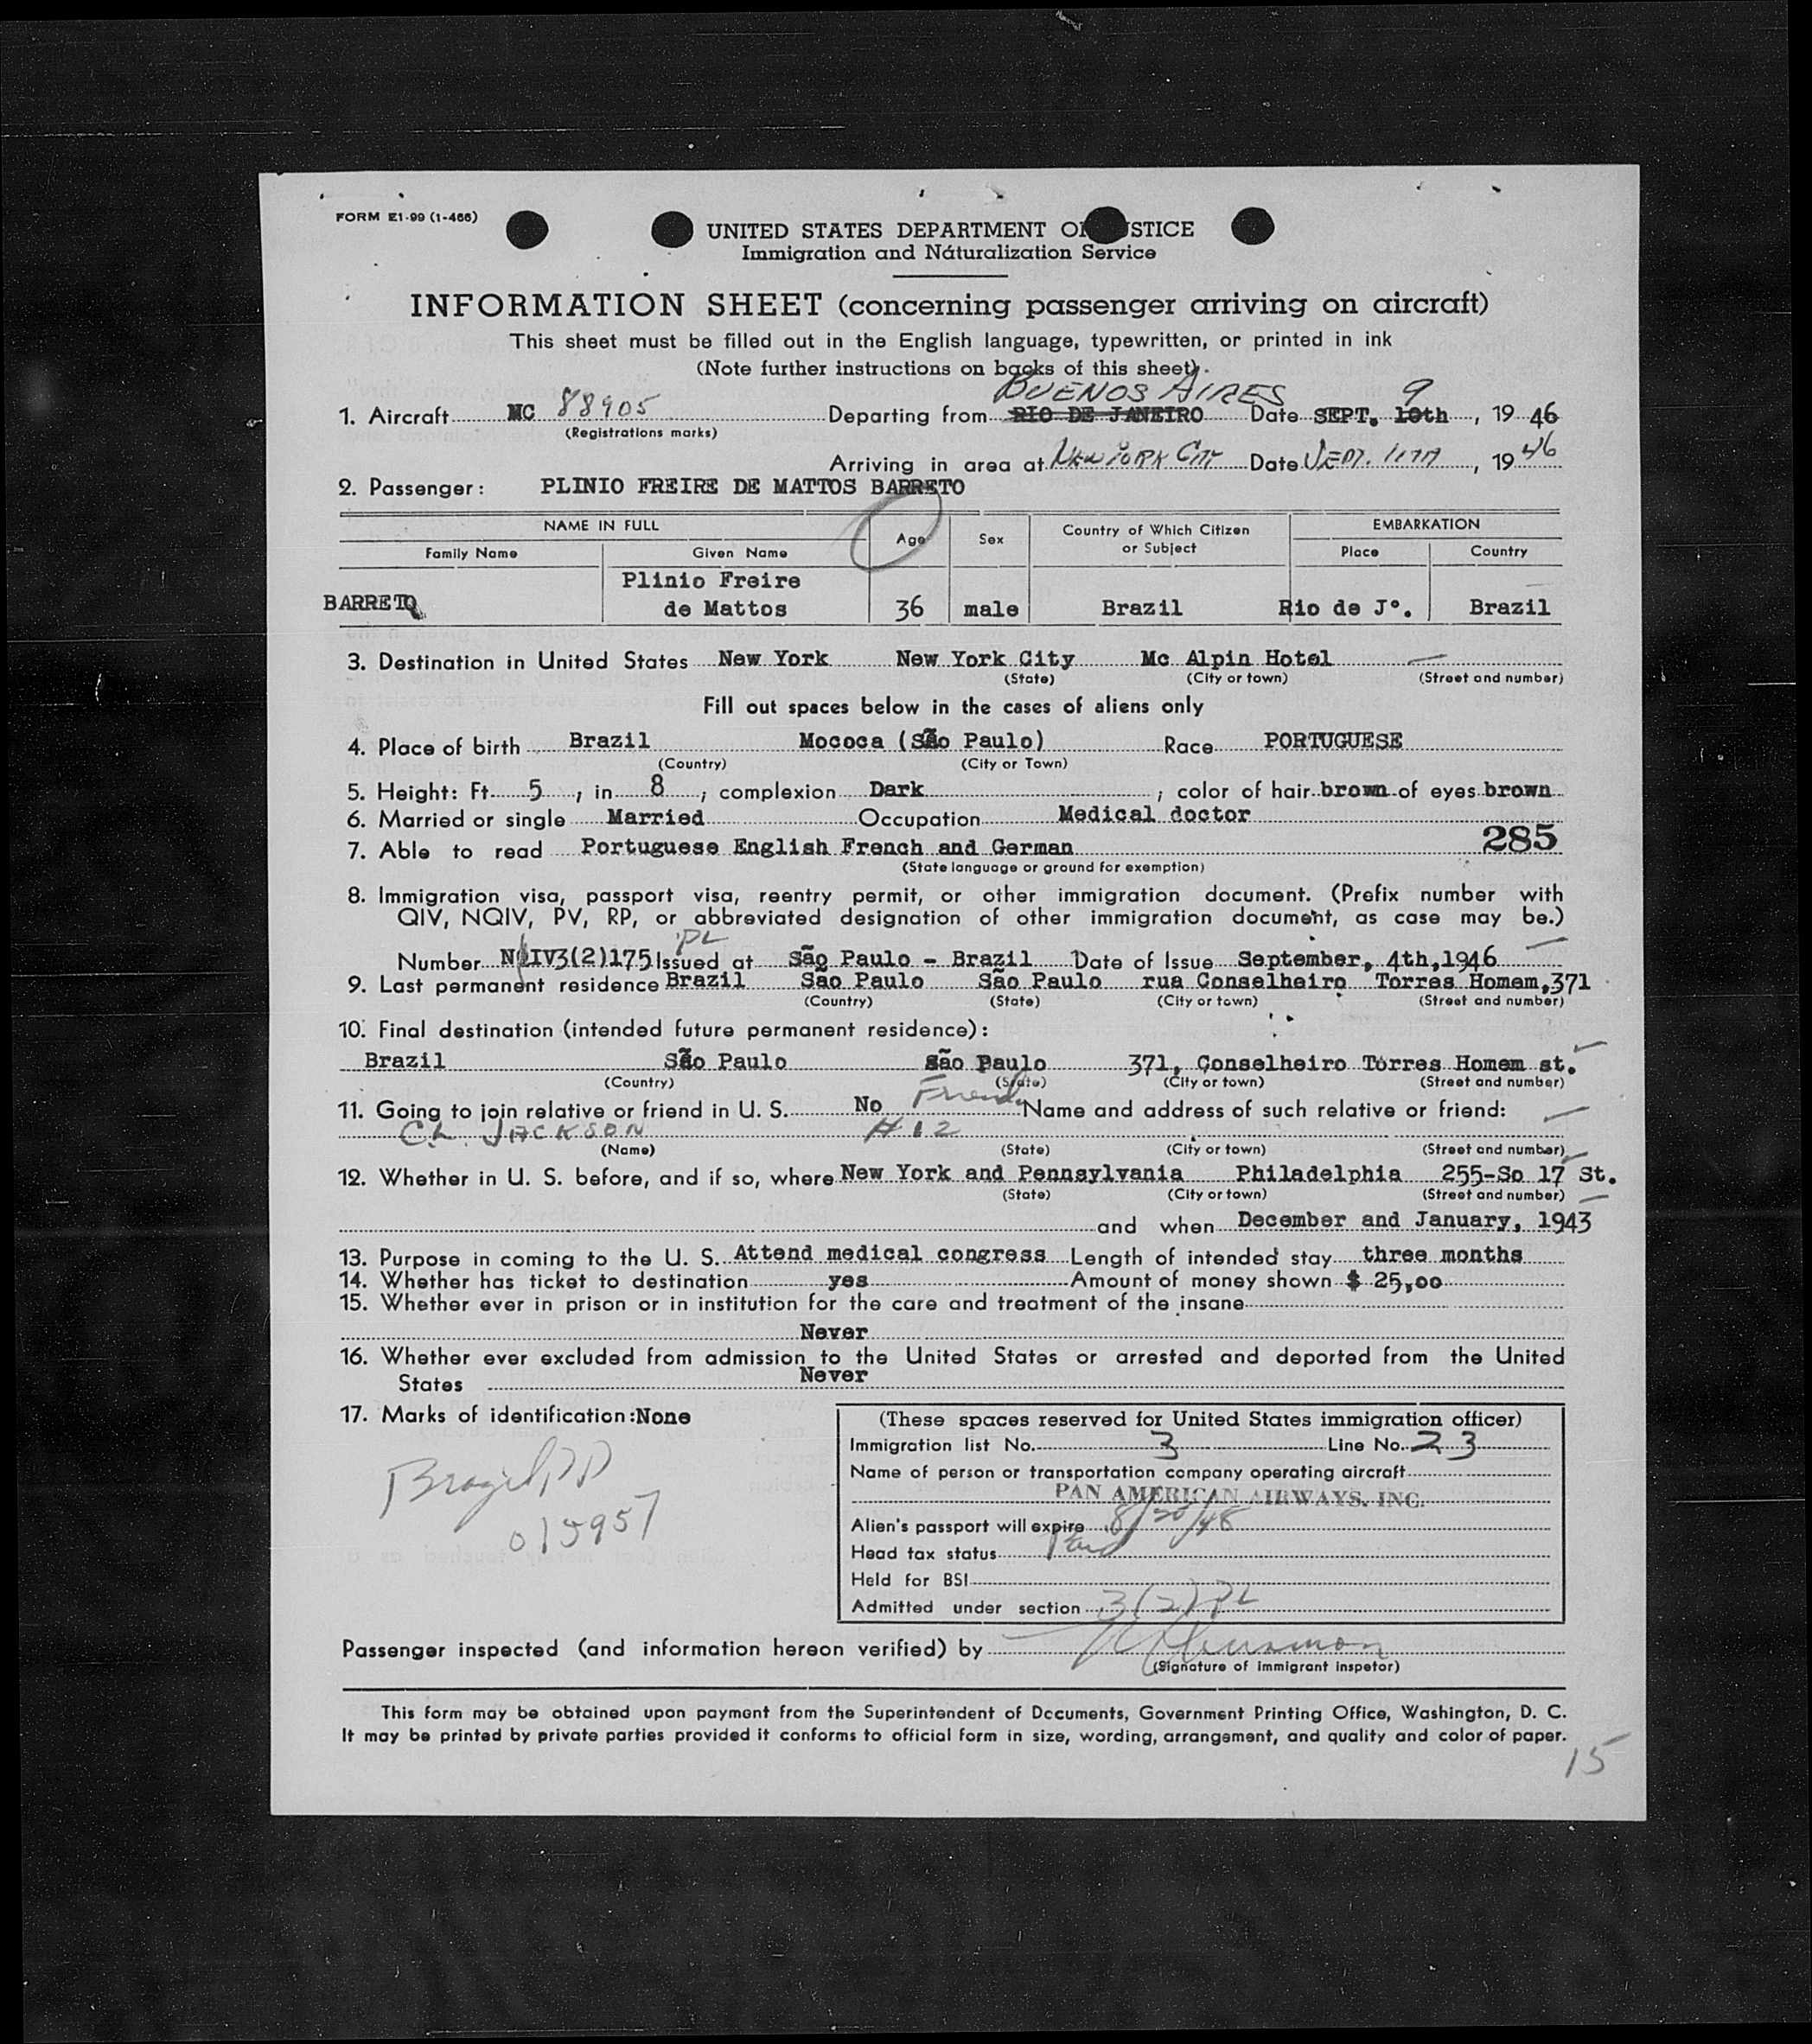 FORM E1-99 (1-466)
UNITED STATES DEPARTMENT OF JUSTICE
Immigration and Naturalization Service
INFORMATION SHEET (concerning passenger arriving on aircraft)
This sheet must be filled out in the English language, typewritten, or printed in ink
(Note further instructions on backs of this sheet).
BUENOS AIRES 9
1. Aircraft MC 88905 Departing from RIO DE JANEIRO Date SEPT. 10th, 19 46
(Registrations marks)
Arriving in area at NEW YORK CITY Date SEPT. 11TH, 19 46
2. Passenger: PLINIO FREIRE DE MATTOS BARRETO
NAME IN FULL Age Sex Country of Which Citizen or Subject EMBARKATION
Family Name Given Name Place Country
Plinio Freire
BARRETO de Mattos 36 male Brazil Rio de Jº. Brazil
3. Destination in United States New York New York City Mc Alpin Hotel
(State) (City or town) (Street and number)
Fill out spaces below in the cases of aliens only
4. Place of birth Brazil Mococa (São Paulo) Race PORTUGUESE
(Country) (City or Town)
5. Height: Ft. 5, in 8; complexion Dark; color of hair brown of eyes brown
6. Married or single Married Occupation Medical doctor
285
7. Able to read Portuguese English French and German
(State language or ground for exemption)
8. Immigration visa, passport visa, reentry permit, or other immigration document. (Prefix number with
QIV, NQIV, PV, RP, or abbreviated designation of other immigration document, as case may be.)
PL
Number NQIV3(2)175 Issued at São Paulo - Brazil Date of Issue September, 4th,1946
9. Last permanent residence Brazil São Paulo São Paulo rua Conselheiro Torres Homem,371
(Country) (State) (City or town) (Street and number)
10. Final destination (intended future permanent residence):
Brazil São Paulo São Paulo 371, Conselheiro Torres Homem st.
(Country) (State) (City or town) (Street and number)
11. Going to join relative or friend in U. S. No Friend Name and address of such relative or friend:
C.L. JACKSON #12
(Name) (State) (City or town) (Street and number)
12. Whether in U. S. before, and if so, where New York and Pennsylvania Philadelphia 255-So 17 St.
(State) (City or town) (Street and number)
and when December and January, 1943
13. Purpose in coming to the U. S. Attend medical congress Length of intended stay three months
14. Whether has ticket to destination yes Amount of money shown $ 25,00
15. Whether ever in prison or in institution for the care and treatment of the insane
Never
16. Whether ever excluded from admission to the United States or arrested and deported from the United
States Never
17. Marks of identification: None
Brazil PP
015957
(These spaces reserved for United States immigration officer)
Immigration list No. 3 Line No. 23
Name of person or transportation company operating aircraft
PAN AMERICAN AIRWAYS, INC.
Alien's passport will expire 8/20/48
Head tax status Paid
Held for BSI
Admitted under section 3(2) PL
Passenger inspected (and information hereon verified) by
(Signature of immigrant inspetor)
This form may be obtained upon payment from the Superintendent of Documents, Government Printing Office, Washington, D. C.
It may be printed by private parties provided it conforms to official form in size, wording, arrangement, and quality and color of paper.
15